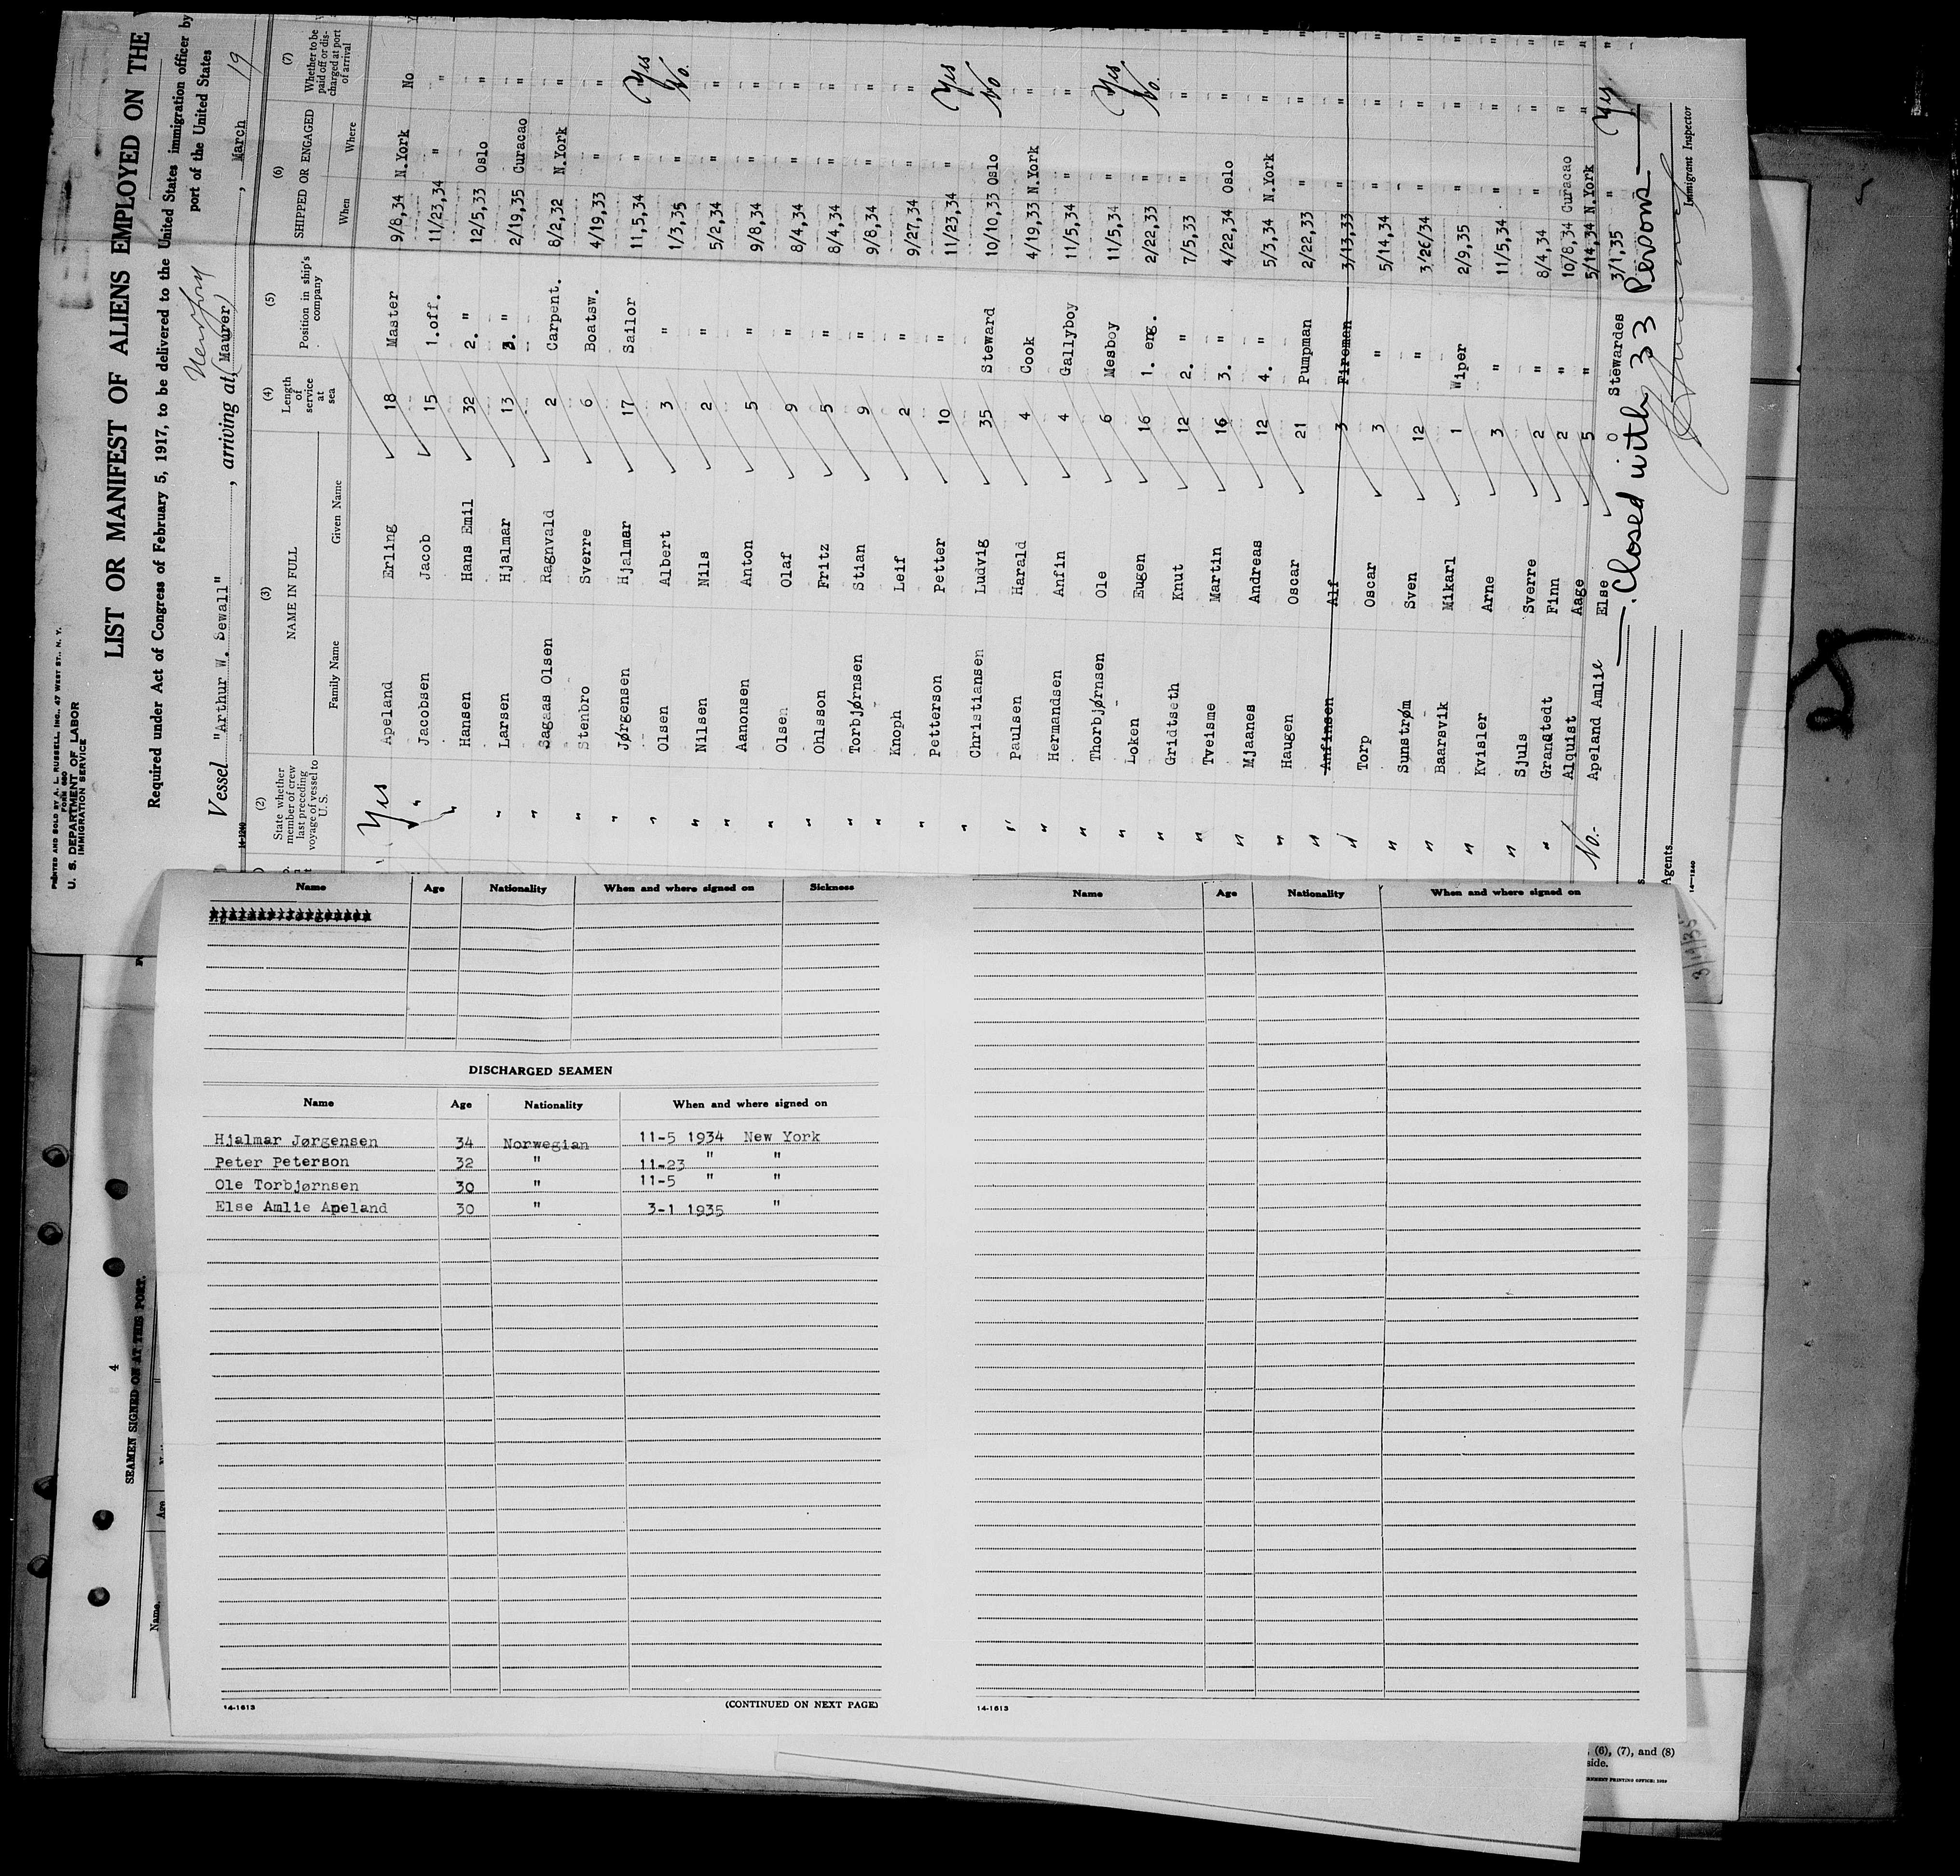 PRINTED AND SOLD BY A. L. RUSSELL, INC., 47 WEST ST., N. Y.
FORM 680
U. S. DEPARTMENT OF LABOR
IMMIGRATION SERVICE
LIST OR MANIFEST OF ALIENS EMPLOYED ON THE
Required under Act of Congress of February 5, 1917, to be delivered to the United States immigration officer by
port of the United States
Vessel "Arthur W. Sewall" , arriving at (Maurer) , March 19
14-1240
(2) (3) (4) (5) (6) (7)
State whether member of crew last preceding voyage of vessel to U. S. NAME IN FULL Length of service at sea Position in ship's company SHIPPED OR ENGAGED Whether to be paid off or discharged at port of arrival
Family Name Given Name When Where
Yes Apeland Erling 18 Master 9/8,34 N.York No
" Jacobsen Jacob 15 1.off. 11/23,34 " "
" Hansen Hans Emil 32 2. " 12/5,33 Oslo "
" Larsen Hjalmar 13 3. " 2/19,35 Curacao "
" Sagaas Olsen Ragnvald 2 Carpent. 8/2,32 N.York "
" Stenbro Sverre 6 Boatsw. 4/19,33 " "
" Jørgensen Hjalmar 17 Sailor 11,5,34 " " Yes
" Olsen Albert 3 " 1/3,35 " " No.
" Nilsen Nils 2 " 5/2,34 " "
" Aanonsen Anton 5 " 9/8,34 " "
" Olsen Olaf 9 " 8/4,34 " "
" Ohlsson Fritz 5 " 8/4,34 " "
" Torbjørnsen Stian 9 " 9/8,34 " "
" Knoph Leif 2 " 9/27,34 " "
" Petterson Petter 10 " 11/23,34 " " Yes
" Christiansen Ludvig 35 Steward 10/10,33 Oslo No
" Paulsen Harald 4 Cook 4/19,33 N.York "
" Hermandsen Anfin 4 Gallyboy 11/5,34 " "
" Thorbjørnsen Ole 6 Mesboy 11/5,34 " Yes
" Loken Eugen 16 1. eng. 2/22,33 " No.
" Gridtseth Knut 12 2. " 7/5,33 " "
" Tveisme Martin 16 3. " 4/22,34 Oslo "
" Mjaanes Andreas 12 4. " 5/3,34 N.York "
" Haugen Oscar 21 Pumpman 2/22,33 " "
" Anfinsen Alf 3 Fireman 3/13,33 " "
" Torp Oscar 3 " 5/14,34 " "
" Sunstrøm Sven 12 " 3/26/34 " "
" Baarsvik Mikarl 1 Wiper 2/9,35 " "
" Kvisler Arne 3 " 11/5,34 " "
" Sjuls Sverre 2 " 8/4,34 " "
Grandtedt Finn 2 " 10/8,34 Curacao "
Alquist Aage 5 " 5/14,34 N.York "
No.- Apeland Amlie Else 0 Stewardes 3/1,35 " "
Closed with 33 Persons
Immigrant Inspector
Agents
14-1240
3/19/35
Name Age Nationality When and where signed on Sickness
DISCHARGED SEAMEN
Name Age Nationality When and where signed on
Hjalmar Jørgensen 34 Norwegian 11-5 1934 New York
Peter Peterson 32 " 11-23 " "
Ole Torbjørnsen 30 " 11-5 " "
Else Amlie Apeland 30 " 3-1 1935 "
14-1613
(CONTINUED ON NEXT PAGE)
Name Age Nationality When and where signed on
14-1613
4
SEAMEN SIGNED ON AT THIS PORT.
Name. Age
, (6), (7), and (8)
side.